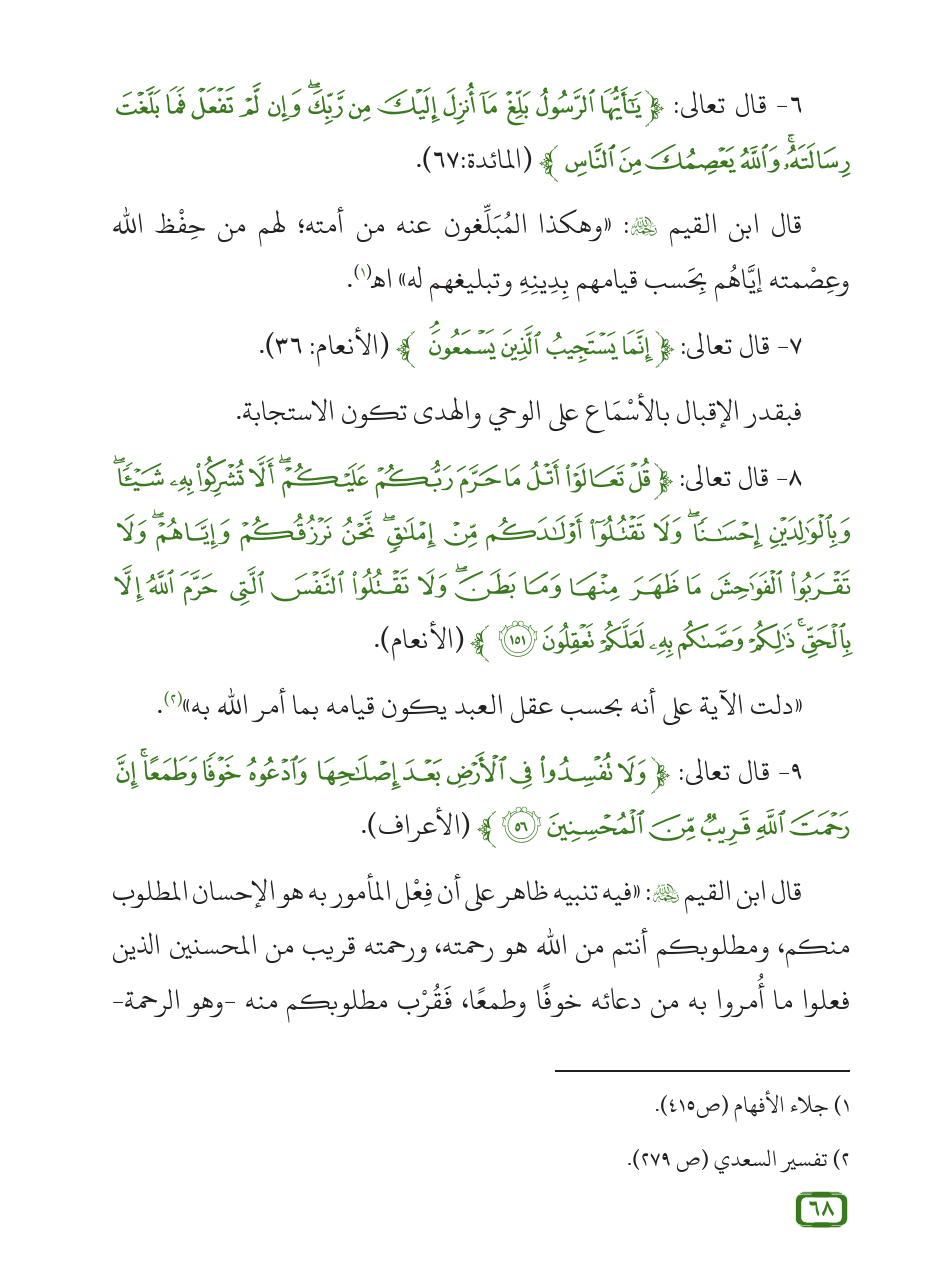 ٦- قال تعالى: ﴿ يَٰٓأَيُّهَا ٱلرَّسُولُ بَلِّغۡ مَآ أُنزِلَ إِلَيۡكَ مِن رَّبِّكَۖ وَإِن لَّمۡ تَفۡعَلۡ فَمَا بَلَّغۡتَ
رِسَالَتَهُۥۚ وَٱللَّهُ يَعۡصِمُكَ مِنَ ٱلنَّاسِ ﴾ (المائدة:٦٧).
قال ابن القيم رحمه الله: «وهكذا المُبَلِّغون عنه من أمته؛ لهم من حِفْظ الله
وعِصْمته إيَّاهُم بِحَسب قيامهم بِدِينِهِ وتبليغهم له» اهـ(١).
٧- قال تعالى: ﴿ إِنَّمَا يَسۡتَجِيبُ ٱلَّذِينَ يَسۡمَعُونَۘ ﴾ (الأنعام: ٣٦).
فبقدر الإقبال بالأسْمَاع على الوحي والهدى تكون الاستجابة.
٨- قال تعالى: ﴿ قُلۡ تَعَالَوۡاْ أَتۡلُ مَا حَرَّمَ رَبُّكُمۡ عَلَيۡكُمۡۖ أَلَّا تُشۡرِكُواْ بِهِۦ شَيۡـٔٗاۖ
وَبِٱلۡوَٰلِدَيۡنِ إِحۡسَٰنٗاۖ وَلَا تَقۡتُلُوٓاْ أَوۡلَٰدَكُم مِّنۡ إِمۡلَٰقٖۖ نَّحۡنُ نَرۡزُقُكُمۡ وَإِيَّاهُمۡۖ وَلَا
تَقۡرَبُواْ ٱلۡفَوَٰحِشَ مَا ظَهَرَ مِنۡهَا وَمَا بَطَنَۖ وَلَا تَقۡتُلُواْ ٱلنَّفۡسَ ٱلَّتِي حَرَّمَ ٱللَّهُ إِلَّا
بِٱلۡحَقِّۚ ذَٰلِكُمۡ وَصَّىٰكُم بِهِۦ لَعَلَّكُمۡ تَعۡقِلُونَ ١٥١ ﴾ (الأنعام).
«دلت الآية على أنه بحسب عقل العبد يكون قيامه بما أمر الله به»(٢).
٩- قال تعالى: ﴿ وَلَا تُفۡسِدُواْ فِي ٱلۡأَرۡضِ بَعۡدَ إِصۡلَٰحِهَا وَٱدۡعُوهُ خَوۡفٗا وَطَمَعًاۚ إِنَّ
رَحۡمَتَ ٱللَّهِ قَرِيبٞ مِّنَ ٱلۡمُحۡسِنِينَ ٥٦ ﴾ (الأعراف).
قال ابن القيم رحمه الله: «فيه تنبيه ظاهر على أن فِعْل المأمور به هو الإحسان المطلوب
منكم، ومطلوبكم أنتم من الله هو رحمته، ورحمته قريب من المحسنين الذين
فعلوا ما أُمروا به من دعائه خوفًا وطمعًا، فَقُرْب مطلوبكم منه -وهو الرحمة-
١) جلاء الأفهام (ص٤١٥).
٢) تفسير السعدي (ص ٢٧٩).
٦٨